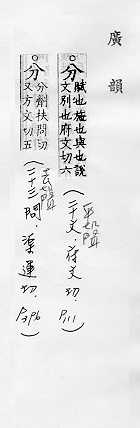 廣韻
○分 賦也施也與也說
文別也府文切六
(二十文.府文切.
平聲
○分 分劑扶問切
又方文切五
(二十三問.渠運切. P.396)
去聲